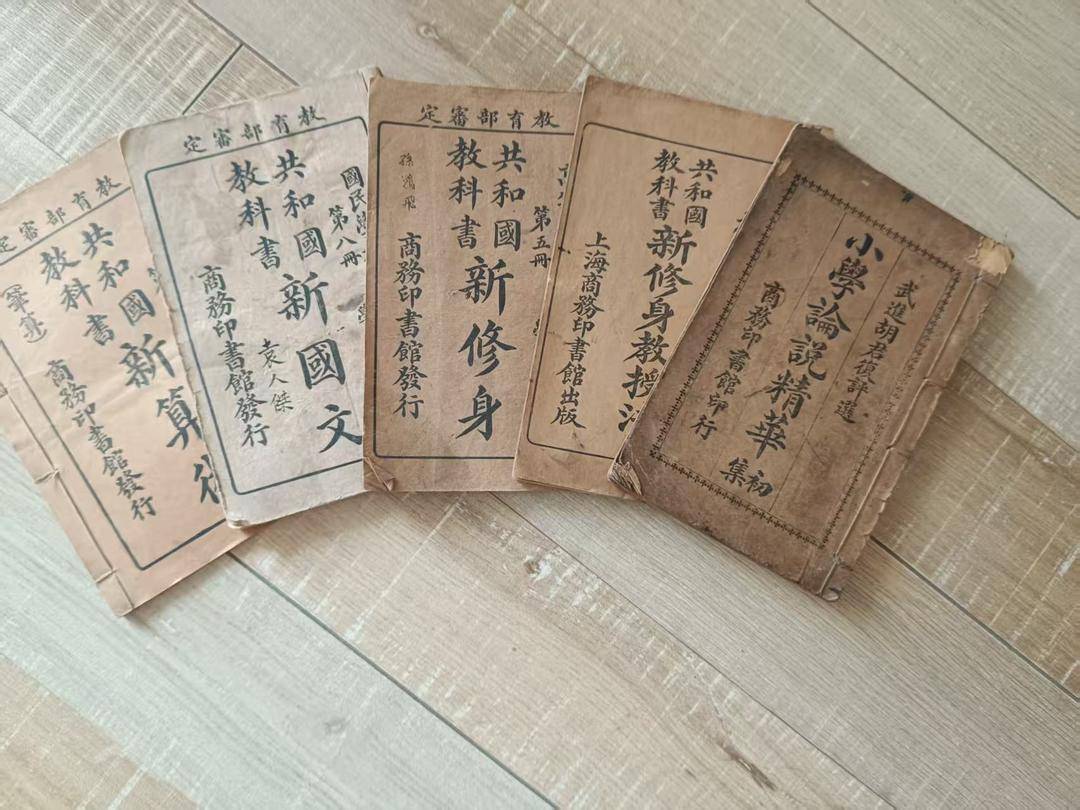 教育部審定
共和國
教科書
新算術
商務印書館發行
教育部審定
國民
第八冊
共和國
教科書
新國文
袁人傑
商務印書館發行
教育部審定
第五冊
共和國
教科書
新修身
商務印書館發行
孫鴻飛
共和國
教科書
新修身教授法
上海商務印書館出版
武進胡君復評選
小學論說精華
初集
商務印書館印行